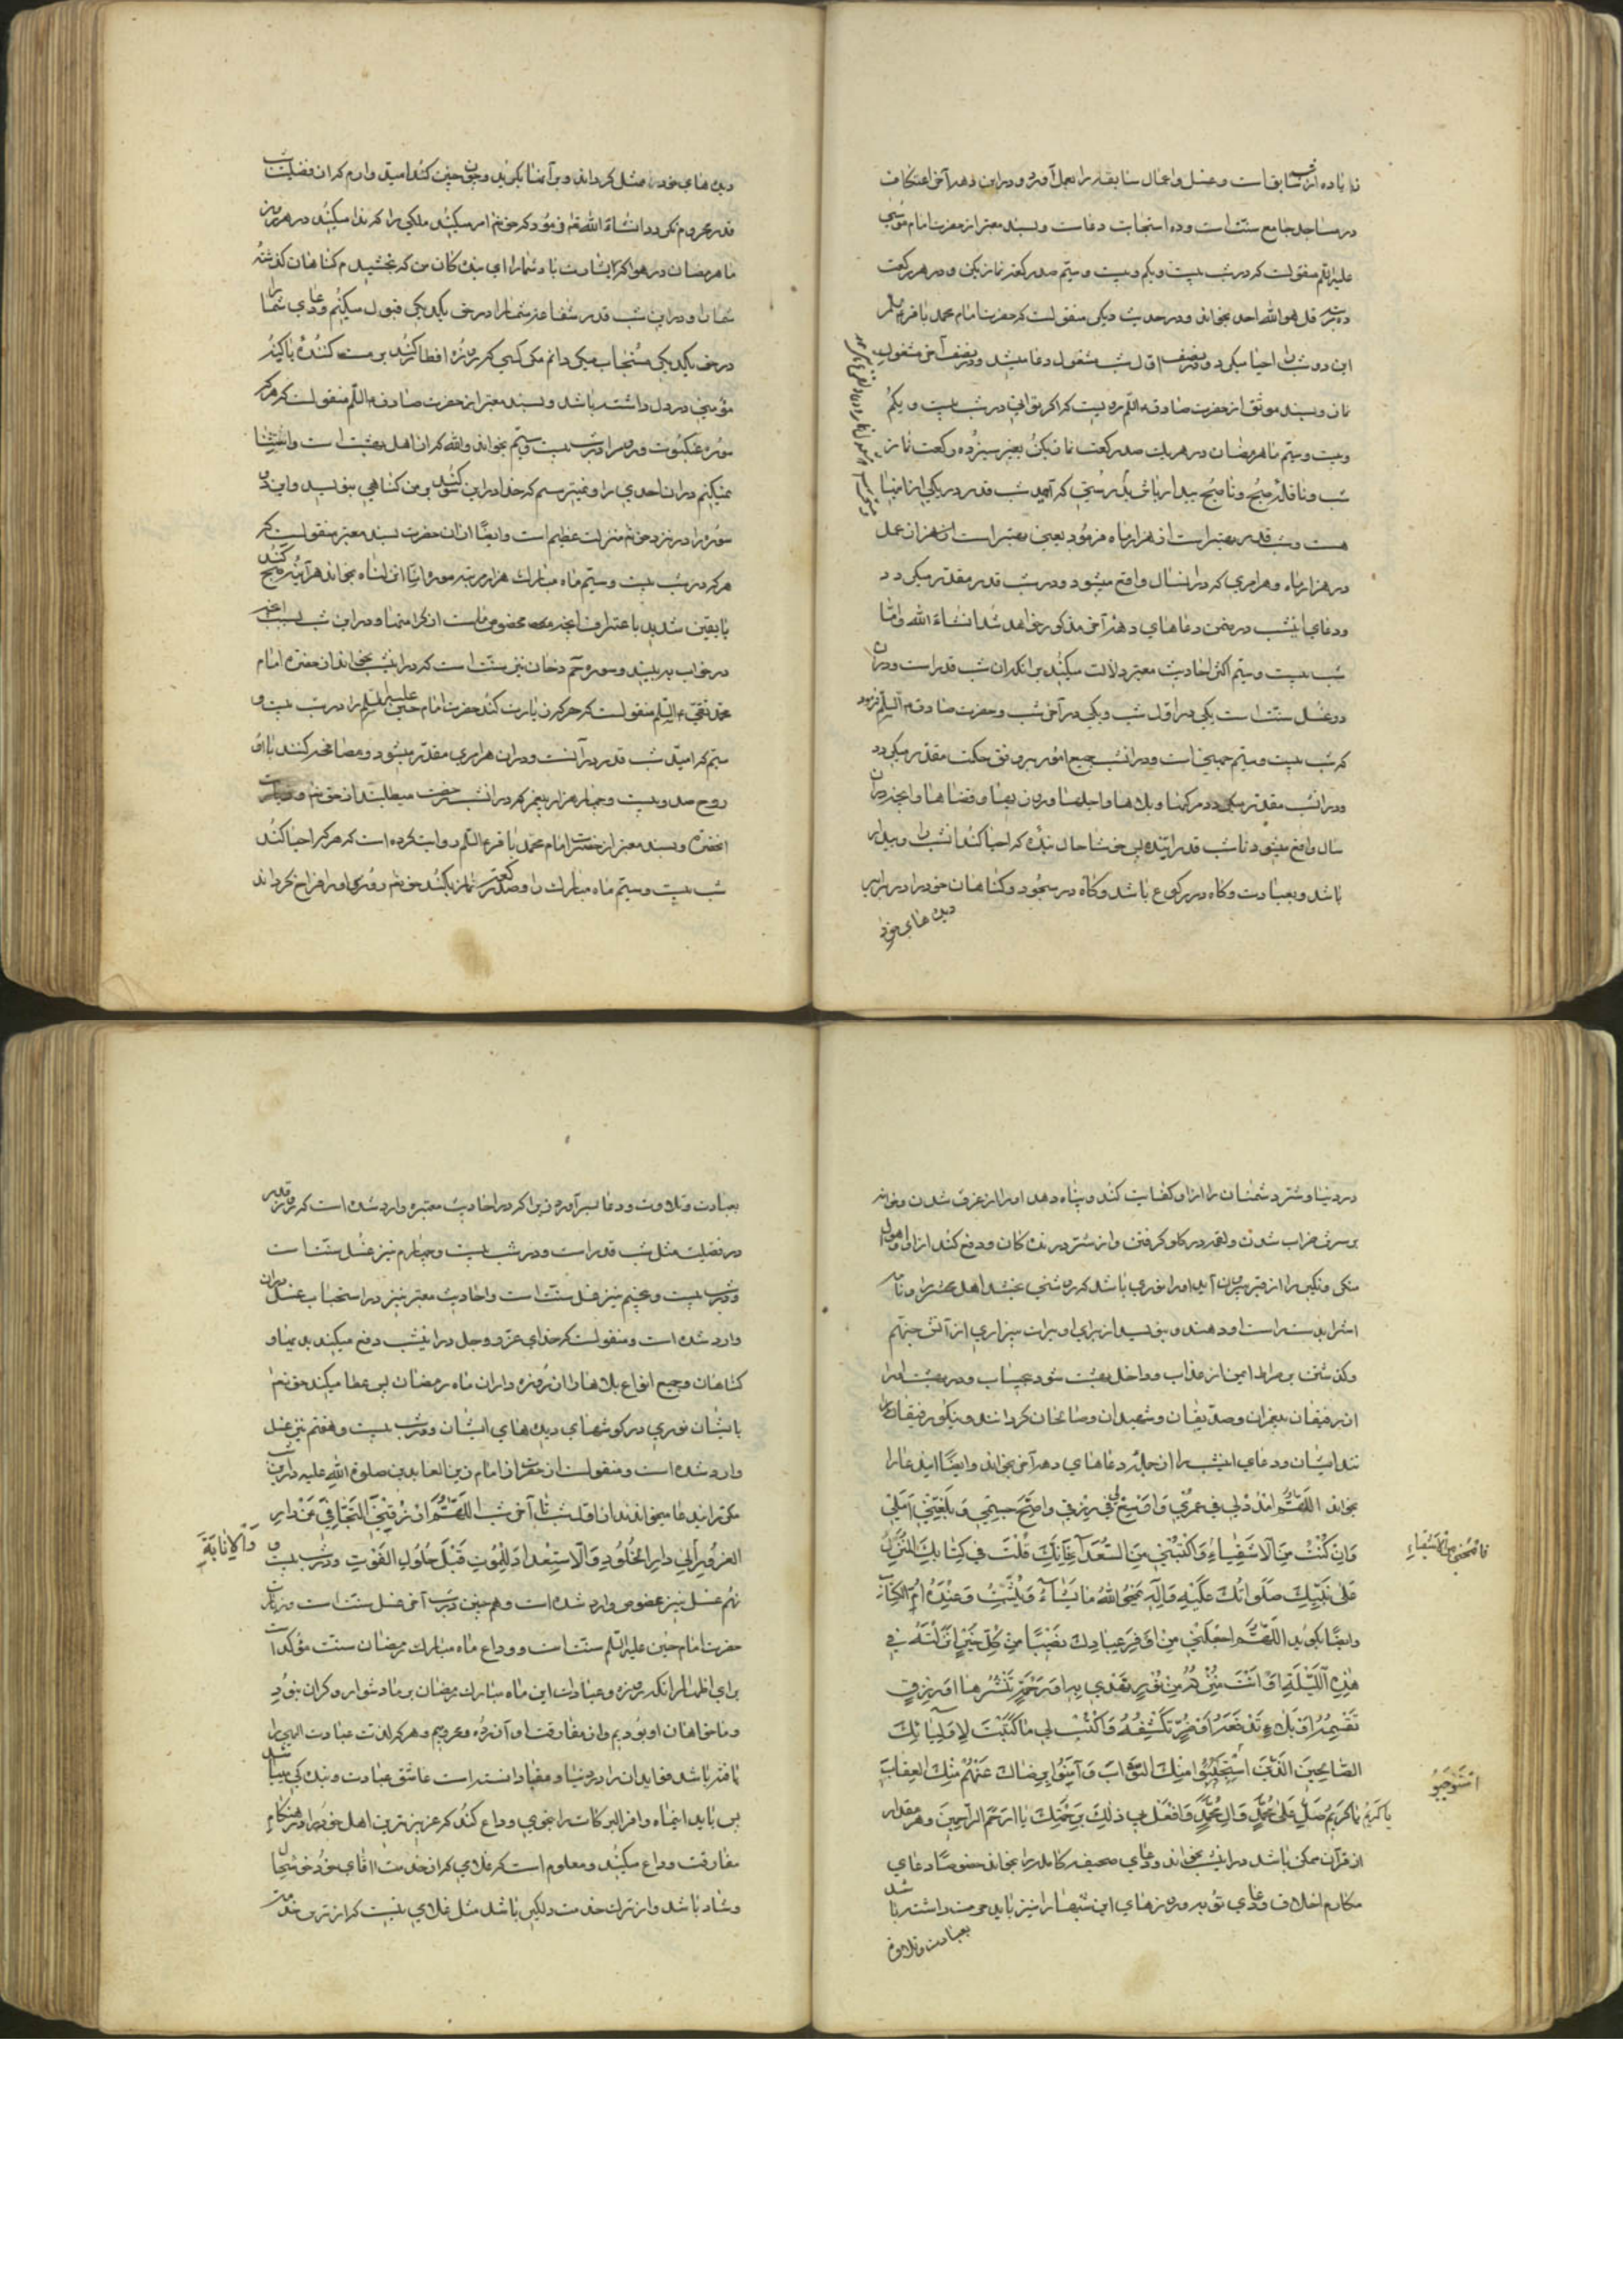 زیاده از شب سابق است و غسل و اعمال سابقه را بعمل آورد و در این دهه آخر اعتکاف
در مساجد جامع سنت است و ده استجابت دعاست و بسند معتبر از حضرت امام موسی
علیه السلم منقولست که در شب بیست و یکم و بیست و سیم صد رکعت نماز بکن و در هر رکعت
ده مرتبه قل هو الله احد بخوان و در حدیث دیگر منقولست که حضرت امام محمد باقر علیه السلم
این دو شب را احیا میکرد و در نصف اول شب مشغول دعا میشد و در نصف آخر مشغول
نماز و بسند موثق از حضرت صادق علیه السلم مرویست که اگر توانی در شب بیست و یکم
و بیست و سیم ماه رمضان در هر یک صد رکعت نماز بکن بغیر سیزده رکعت نماز
شب و نافله صبح و تا صبح بیدار باش بدرستی که امید شب قدر در یکی از اینها
هست و شب قدر بهتر است از هزار ماه فرمود یعنی بهتر است از هزار عمل
در هزار ماه و هر امری که در آنسال واقع میشود در شب قدر مقدر میکردد
و دعای اینشب در ضمن دعاهای دهه آخر مذکور خواهد شد انشاء الله و اما
شب بیست و سیم اکثر احادیث معتبر دلالت میکند بر آنکه آن شب قدر است و در آن
دو غسل سنت است یکی در اول شب و یکی در آخر شب و حضرت صادق علیه السلم فرمود
که شب بیست و سیم جهنی است و در آنشب جمیع امور بر وفق حکمت مقدر میکردد
و در آنشب مقدر میکردد مرکها و بلاها و اجلها و روزیها و قضاها و آنچه در آن
سال واقع میشود تا شب قدر آینده پس خوشا حال بنده که احیا کند آنشب را و بیدار
باشد و بعبادت و کاه در رکوع باشد و کاه در سجود و کناهان خود را در برابر
دیدهای خود
دیدهای خود ممثل کرداند و بر آنها بکرید و چون چنین کند امید دارم که از فضیلت شب
قدر محروم نکردد انشاء الله و فرمود که حق تعالی امر میکند ملکی را که ندا میکند در هر روز
ماه رمضان در هوا که بشارت باد شما را ای بندکان من که بخشیدم کناهان کذشته
شما را و در این شب قدر شفاعت شما را در حق یکدیکر قبول میکنم و دعای شما را
در حق یکدیکر مستجاب میکردانم مکر کسی که روزه افطار کند بر مست کننده یا کینه
مؤمنی در دل داشته باشد و بسند معتبر از حضرت صادق علیه السلم منقولست که هر که
سوره عنکبوت و روم را در شب بیست و سیم بخواند والله که از اهل بهشت است و استثنا
نمیکنم در آن احدی را و نمیترسم که خدا در این سوکند بر من کناهی بنویسد و این دو
سوره را در نزد حق تعالی منزلت عظیم است و ایضا از آن حضرت بسند معتبر منقولست که
هر که در شب بیست و سیم ماه مبارک هزار مرتبه سوره انا انزلناه بخواند هر آینه صبح کند
با یقین شدید باعتراف آنچه مخصوص ماست از کرامتها و در این شب بسبب آنچه
در خواب ببیند و سوره حم دخان نیز سنت است که در اینشب بخواند از حضرت امام
محمد تقی علیه السلم منقولست که هر که زیارت کند حضرت امام حسین علیه السلم را در شب بیست و
سیم که امید شب قدر در آنست و در آن هر امری مقدر میشود مصافحه کنند با او
روح صد و بیست و چهار هزار پیغمبر که در آنشب رخصت میطلبند از حق تعالی در زیارت
آنحضرت و بسند معتبر از حضرت امام محمد باقر علیه السلم روایت کرده است که هر که احیا کند
شب بیست و سیم ماه مبارک را و صد رکعت نماز بکند حق تعالی روزی او را فراخ کرداند
در دنیا و شر دشمنان را از او کفایت کند و پناه دهد او را از غرق شدن و خانه
بر سرش خراب شدن و لقمه در کلو کرفتن و از شر درندکان و دفع کند از او اهوال
منکر و نکیر را از قبر بیرون آید او را نوری باشد که روشنی بخشد اهل محشر را و نامه
اش را بدست راست او دهند و بنویسد از برای او برات بیزاری از آتش جهنم
و کذشتن بر صراط ایمن از عذاب و داخل بهشت شود بیحساب و در بهشت او را
از رفیقان پیغمبران و صدیقان و شهیدان و صالحان کردانند و نیکو رفیقان
بخواند اللهم امدد لی فی عمری و اوسع لی فی رزقی و اصح جسمی و بلغنی املی
و ان کنت من الاشقیاء و اکتبنی من السعداء فانک قلت فی کتابک المنزل
فامحنی من الاشقیاء
علی نبیک صلواتک علیه و آله یمحو الله ما یشاء و یثبت و عنده ام الکتاب
و ایضا بکوید اللهم اجعلنی من اوفر عبادک نصیبا من کل خیر انزلته فی
هذه اللیلة او انت منزله من نور تهدی به او رحمة تنشرها او رزق
تقسمه او بلاء تدفعه او ضر تکشفه و اکتب لی ما کتبت لاولیائک
الصالحین الذین استوجبوا منک الثواب و آمنوا برضاک عنهم منک العقاب
استوجبوا
یا کریم یا کریم صل علی محمد و آل محمد و افعل بی ذلک برحمتک یا ارحم الراحمین و هر مقدار
از قرآن ممکن باشد در اینشب بخواند و دعای صحیفه کامله را بخواند خصوصا دعای
مکارم اخلاق و دعای توبه و روزهای این شبها را نیز باید حرمت داشته باشد
بعبادت و تلاوت
بعبادت و تلاوت و دعا بسر آورد زیرا که در احادیث معتبره وارد شده است که روز قدر
در فضیلت مثل شب قدر است و در شب بیست و چهارم نیز غسل سنت است
و در شب بیست و پنجم نیز غسل سنت است و احادیث معتبر نیز در استحباب غسل در آن
وارد شده است و منقولست که خدای عز و جل در اینشب دفع میکند بدیها و
کناهان و جمیع انواع بلاها را از روزه داران ماه رمضان پس عطا میکند حق تعالی
بایشان نوری در کوشهای و دیدهای ایشان و در شب بیست و هفتم نیز غسل
وارد شده است و منقولست از حضرت امام زین العابدین صلوة الله علیه در این شب
مکرر این دعا میخواندند از اول شب تا آخر شب اللهم ارزقنی التجافی عن دار
الغرور و الانابة الی دار الخلود و الاستعداد للموت قبل حلول الفوت و در شب بیست و
نهم غسل نیز بخصوص وارد شده است و همچنین در شب آخر غسل سنت است و زیارت
حضرت امام حسین علیه السلم سنت است و وداع ماه مبارک رمضان سنت مؤکد است
برای اظهار آنکه روزه و عبادات این ماه مبارک رمضان بر ما دشوار و کران نبود
و ما خواهان او بودیم و از مفارقت او آزرده و محرومیم و هر که لذت عبادت الهی را
یافته باشد میداند
پس باید این ماه وافر البرکات را بخوبی وداع کند که عزیزترین اهل خود را در هنکام
مفارقت وداع میکند و معلوم است که غلامی که از خدمت آقای خود خوشحال
و شاد باشد و از ترک خدمت دلکیر باشد مثل غلامی نیست که از ترک خدمت